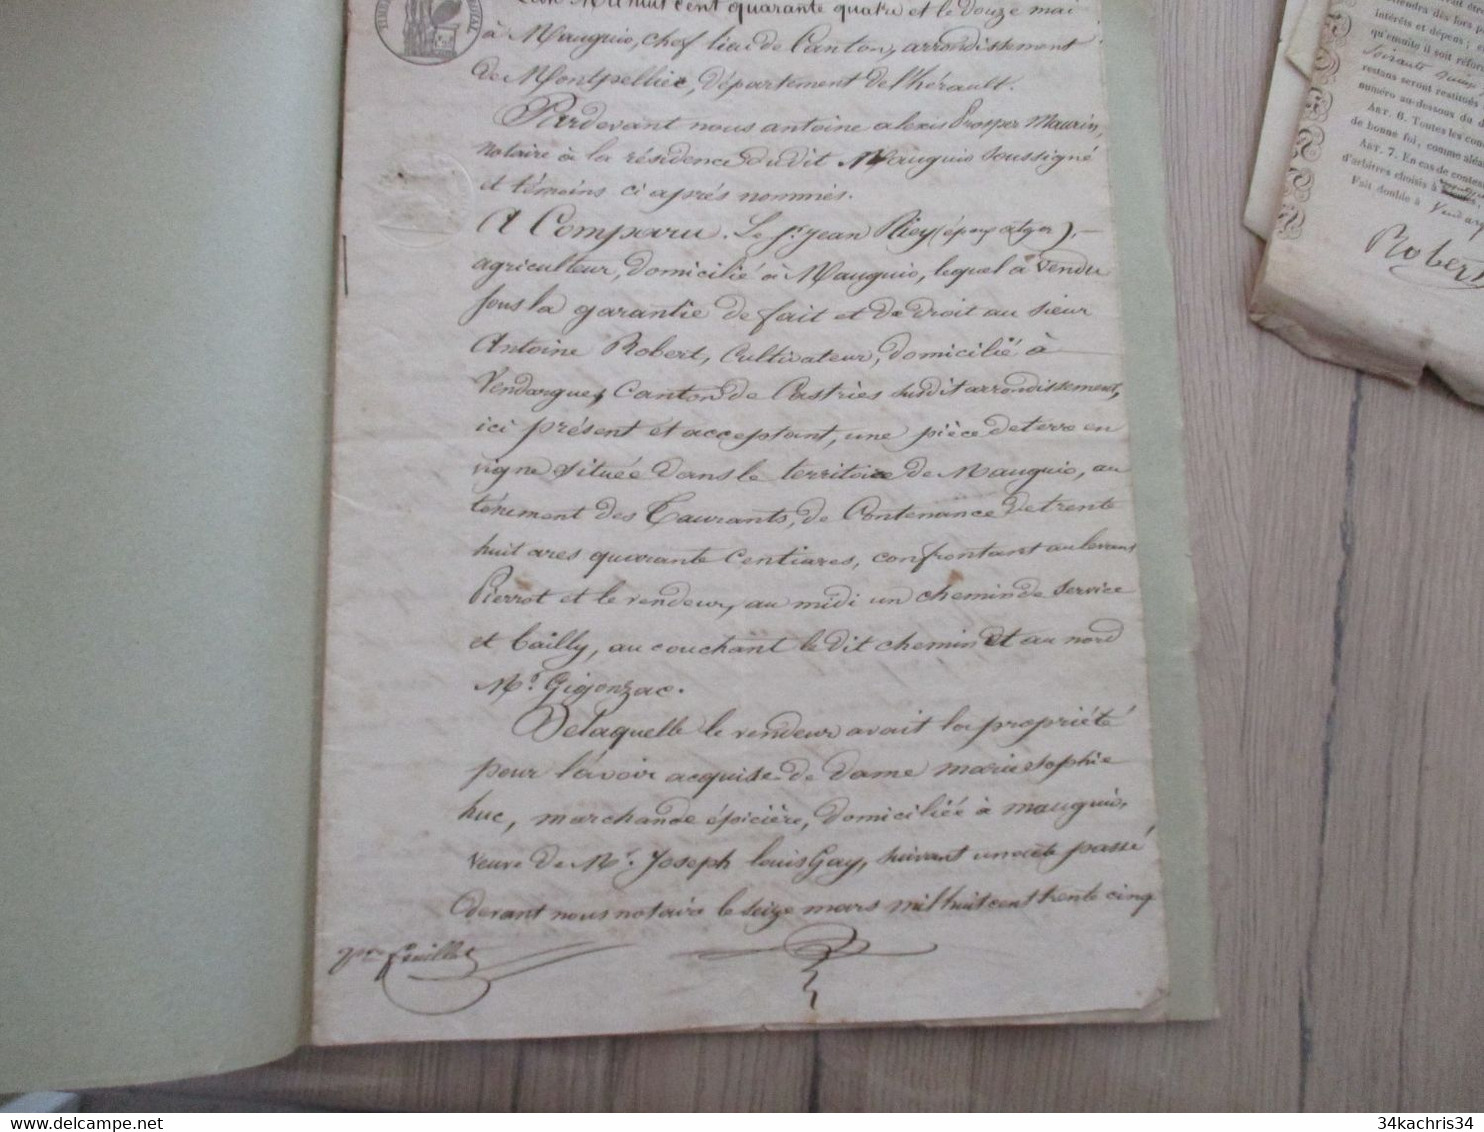 Lan Mil huit cent quarante quatre et le douze mai
à Mauguio, chef lieu de Canton, arrondissement
de Montpellier, département de l'hérault.
Pardevant nous antoine alexis Prosper Maurin,
notaire à la résidence dudit Mauguio soussigné
et témoins ci après nommés.
A Comparu. Le Sr. jean Rey
agriculteur, domicilié à Mauguio, lequel à vendu
sous la garantie de fait et de droit au sieur
Antoine Robert, cultivateur, domicilié à
Vendargues Canton de Castries susdit arrondissement,
ici présent et acceptant, une pièce de terre en
vigne située dans le territoire de Mauguio, au
ténement des Taurants, de Contenance de trente
huit ares quarante Centiares, confrontant au levant
Pierrot et le vendeur, au midi un chemin de service
et Cailly, au couchant le dit chemin et au nord
Mr. Gigonzac.
De laquelle le vendeur avait la propriété
pour l'avoir acquise de dame marie sophie
huc, marchande épicière, domiciliée à mauguio,
veuve de Mr. Joseph Louis Gay, suivant un acte passé
devant nous notaire le seize mars mil huit cent trente cinq
feuillet
intérêts et dépens ; e
qu'ensuite il soit réfor
restans seront restitués
numéro au-dessous du d
ART. 6. Toutes les con
de bonne foi, comme aléa
ART. 7. En cas de contes
d'arbitres choisis à
Fait double à Vendarg
Robert
34kachris34